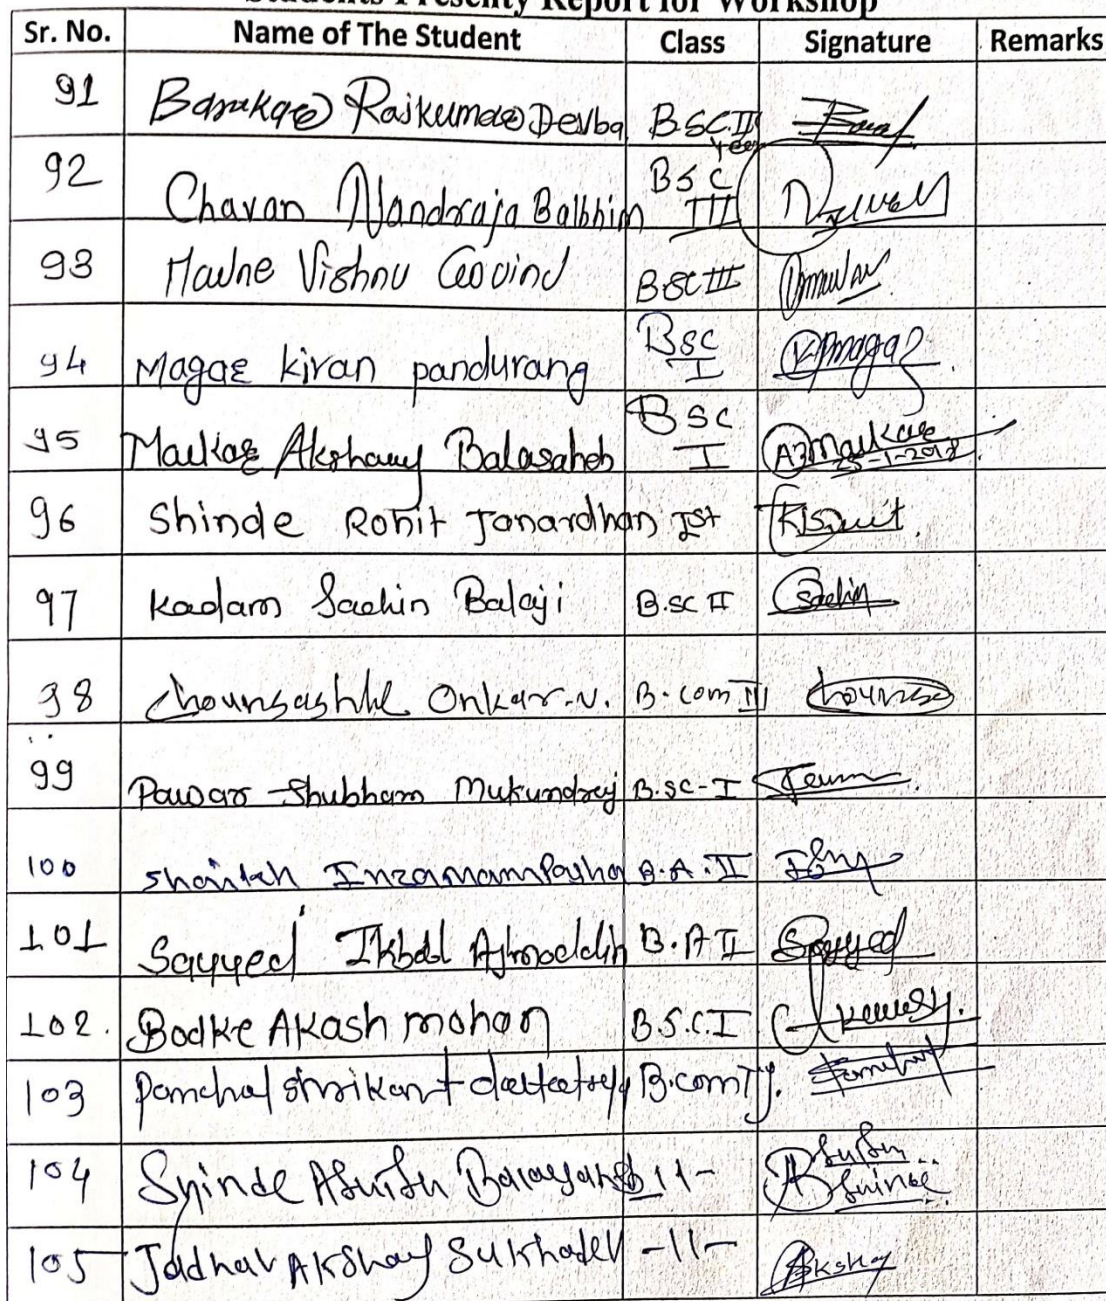 Students Presenty Report for Workshop
Sr. No. Name of The Student Class Signature Remarks
91 Rajkumar Devba B.SC.II year
92 Chavan Nandraja Balbhim BSC III
93 Vishnu Govind B.SC III
94 Magar kiran pandurang BSC I
95 Akshay Balasaheb BSC I 25-1-2018
96 Shinde Rohit Janardhan Ist
97 Kadam Sachin Balaji B.SC II Sachin
98 Onkar.N. B.com III
99 Pawar Shubham Mukundraj B.SC-I
100 Shaikh Inzamam Pasha B.A.II
101 Sayyed Ikbal B.A II Sayyed
102. Bodke Akash mohan B.S.C.I
103 Panchal shrikant B.com
104 -11-
105 Jadhav Akshay Sukhadev -11- Akshay